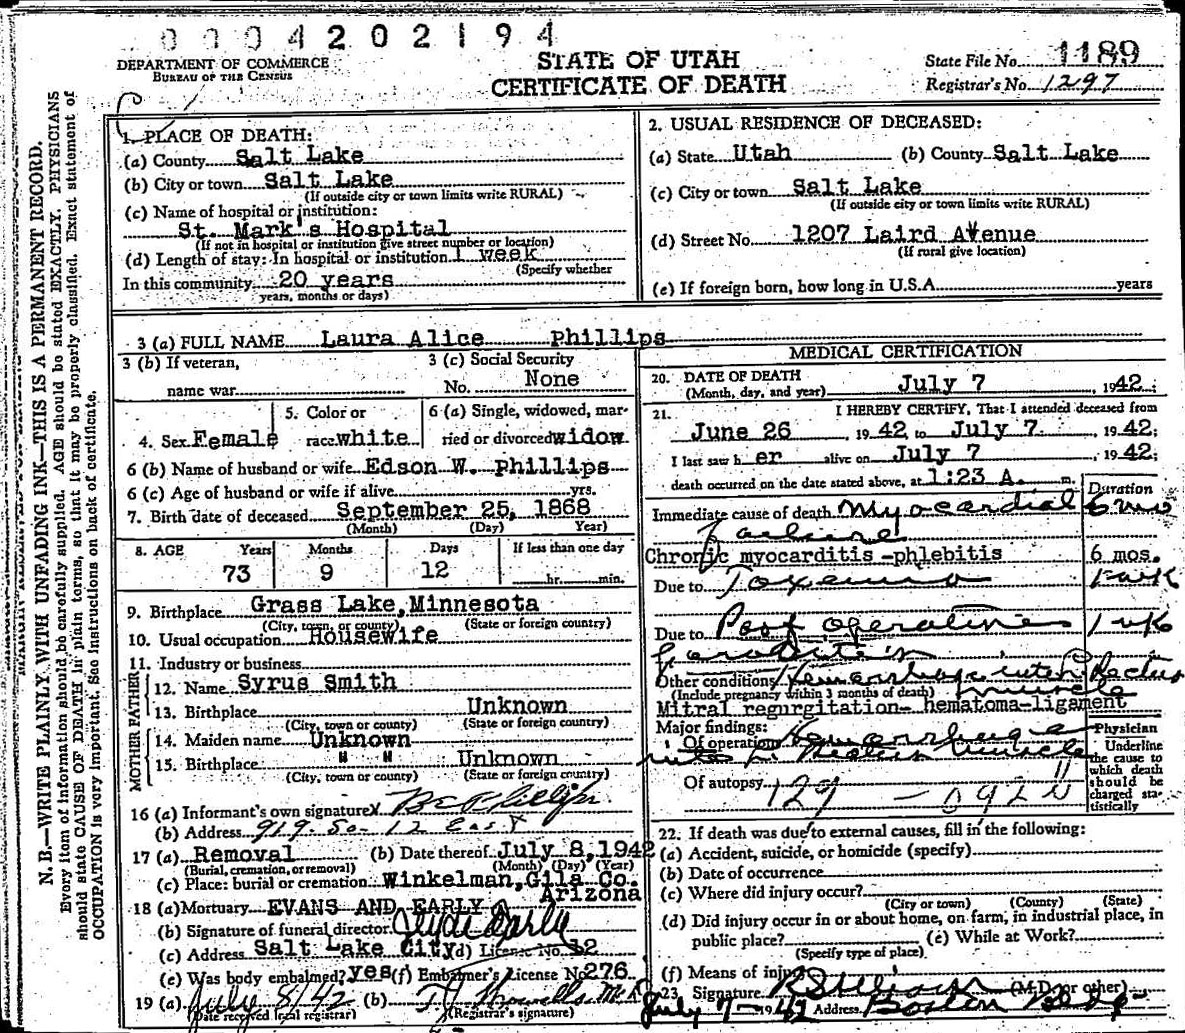 0 0 0 4 2 0 2 1 9 4
DEPARTMENT OF COMMERCE
BUREAU OF THE CENSUS
STATE OF UTAH
CERTIFICATE OF DEATH
State File No. 1189
Registrar's No. 1297
N. B.—WRITE PLAINLY, WITH UNFADING INK—THIS IS A PERMANENT RECORD.
Every item of information should be carefully supplied. AGE should be stated EXACTLY. PHYSICIANS
should state CAUSE OF DEATH in plain terms, so that it may be properly classified. Exact statement of
OCCUPATION is very important. See instructions on back of certificate.
1. PLACE OF DEATH:
(a) County Salt Lake
(b) City or town Salt Lake
(If outside city or town limits write RURAL)
(c) Name of hospital or institution:
St. Mark's Hospital
(If not in hospital or institution give street number or location)
(d) Length of stay: In hospital or institution 1 week
(Specify whether
In this community 20 years
years, months or days)
2. USUAL RESIDENCE OF DECEASED:
(a) State Utah (b) County Salt Lake
(c) City or town Salt Lake
(If outside city or town limits write RURAL)
(d) Street No. 1207 Laird Avenue
(If rural give location)
(e) If foreign born, how long in U.S.A. years
3 (a) FULL NAME Laura Alice Phillips
3 (b) If veteran,
name war
3 (c) Social Security
No. None
4. Sex Female
5. Color or
race white
6 (a) Single, widowed, mar-
ried or divorced widow
6 (b) Name of husband or wife Edson W. Phillips
6 (c) Age of husband or wife if alive yrs.
7. Birth date of deceased September 25, 1868
(Month) (Day) Year)
8. AGE Years Months Days If less than one day
73 9 12 hr. min.
9. Birthplace Grass Lake, Minnesota
(City, town, or county) (State or foreign country)
10. Usual occupation Housewife
11. Industry or business
FATHER
12. Name Syrus Smith
13. Birthplace Unknown
(City, town or county) (State or foreign country)
MOTHER
14. Maiden name Unknown
15. Birthplace " " Unknown
(City, town or county) (State or foreign country)
16 (a) Informant's own signature X Phillips
(b) Address 919 So- 12 East
17 (a) Removal (b) Date thereof July 8, 1942
(Burial, cremation, or removal) (Month) (Day) (Year)
(c) Place: burial or cremation Winkelman, Gila Co.
Arizona
18 (a) Mortuary EVANS AND EARLY
(b) Signature of funeral director Clyde Early
(c) Address Salt Lake City (d) License No. 12
(e) Was body embalmed? yes (f) Embalmer's License No 276
19 (a) July 8/42 (b)
Date received local registrar) (Registrar's signature)
MEDICAL CERTIFICATION
20. DATE OF DEATH
(Month, day, and year) July 7, 1942;
21. I HEREBY CERTIFY, That I attended deceased from
June 26, 1942 to July 7, 1942;
I last saw her alive on July 7, 1942;
death occurred on the date stated above, at 1:23 A. m.
Duration
Immediate cause of death Myocardial 6 mo
Failure
Chronic myocarditis -phlebitis 6 mos.
Due to Toxemia 1 wk
Due to Post operative 1 wk
Parotitis
Other conditions Hemorrhage into L Rectus
(Include pregnancy within 3 months of death) muscle
Mitral regurgitation- hematoma-ligament
Major findings:
Of operation Hemorrhage
into L. Rectus muscle
Of autopsy
129 -
Physician
Underline
the cause to
which death
should be
charged sta-
tistically
22. If death was due to external causes, fill in the following:
(a) Accident, suicide, or homicide (specify)
(b) Date of occurrence
(c) Where did injury occur?
(City or town) (County) (State)
(d) Did injury occur in or about home, on farm, in industrial place, in
public place? (e) While at Work?
(Specify type of place)
(f) Means of injury
23 Signature (M.D. or other)
July 7- 1942 Address Boston Bldg